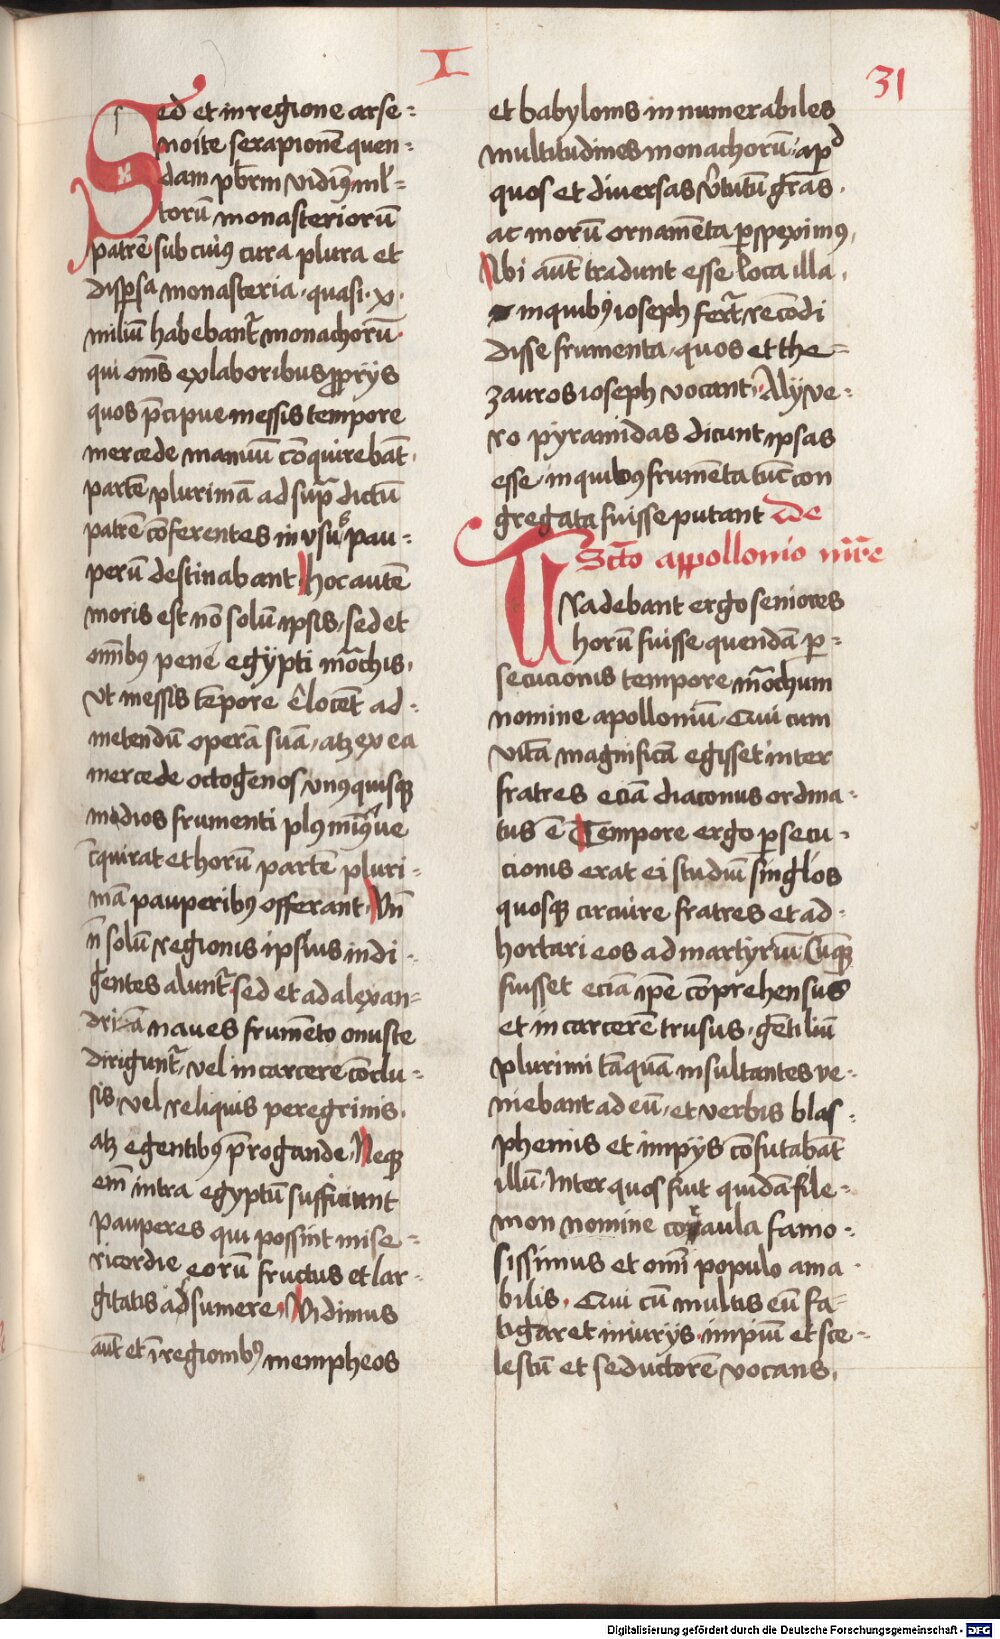 I
31
Sed et in regione arse-
noite serapionē quen-
dam pb̄rm vidim⁹ ml̄-
torū monasteriorū
patrē sub cui⁹ cura plura et
disp̱sa monasteria · quasi · x ·
miliū habebant̄ monachorū
qui om̄s ex laboribus ꝓprijs
quos p̄cipue messis tempore
mercede manuū cōquirebāt ·
partē plurimā ad sup̄ dictū
patrē cōferentes in vsus pau-
perū destinabant hoc autē
moris est nō solū ipsis · sed et
om̄ibus pene egypti mōchis ·
vt messis tēpore elocēt ad-
metendū operā suā · atꝫ ex ea
mercede octogenos vn⁹quisqꝫ
modios frumenti pl⁹ min⁹ue
cquirat et horū partē pluri-
mā pauperibꝰ offerant · Vn̄
n̄ solū regionis ipsius indi-
gentes alunt̄ sed et ad alexan-
driā naues frumēto onuste
dirigunt̄ · vel in carcere cōclu-
sis · vel reliquis peregrinis ·
atꝫ egentibꝰ p̄rogande · Neqꝫ
em̄ intra egyptū sufficiunt
pauperes qui possint mise-
ricordie eorū fructus et lar-
gitatis adsumere · Vidimus
aūt et ī regionibꝰ mempheos
et babylonis innumerabiles
multitudines monachorū · apd
quos et diuersas v̓tutū gr̄as ·
ac morū ornamēta ꝑspeximꝰ ·
Vbi aūt tradunt esse loca illa ·
in quibꝰ ioseph fert̄ recōdi
disse frumenta · quos et the-
zauros ioseph vocant · Alij ve-
ro pyramidas dicunt ipsas
esse · in quibꝰ frumēta tūc con
gregata fuisse putant De
Sc̄to appollonio mr̄e
Tradebant ergo seniores
horū fuisse quendā ꝑ-
secucionis tempore mōchum
nomine apolloniū · Qui cum
vitā magnificā egisset inter
fratres eciā diaconus ordina-
tus ē Tempore ergo ꝑsecu-
cionis erat ei studiū singlos
quosqꝫ circuire fratres et ad-
hortari eos ad martyriū Cūqꝫ
fuisset eciā ip̄e cōprehensus
et in carcerē trusus · gētiliū
plurimi tāquā insultantes ve-
niebant ad eū · et verbis blas-
phemis et impijs cōfutabāt
illū · Inter quos fuit quidā file-
mon nomine coraula famo-
sissimus et om̄i populo ama
bilis · Qui cū multis eū fa-
tigaret iniurijs · impiū et sce-
lestū et seductorē vocans ·
Digitalisierung gefördert durch die Deutsche Forschungsgemeinschaft - DFG